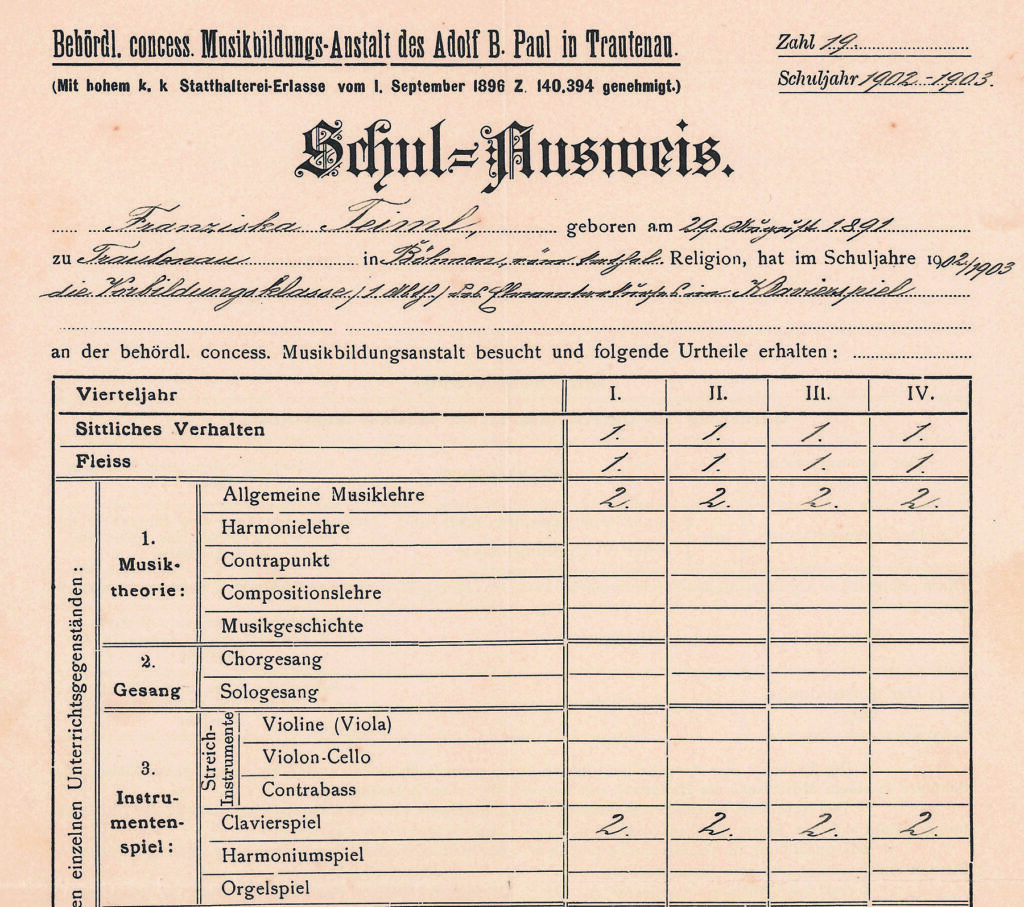 Behördl. concess. Musikbildungs-Anstalt des Adolf B. Paul in Trautenau.
Zahl 19.
(Mit hohem k. k Statthalterei-Erlasse vom 1. September 1896 Z. 140.394 genehmigt.)
Schuljahr 1902.-1903.
Schul=Ausweis.
Franziska Teiml, geboren am 29. August 1891
zu Trautenau in Böhmen, röm. kathol. Religion, hat im Schuljahre 1902/1903
die Vorbildungsklasse (1. Abth) des Elementarkurses im Klavierspiel
an der behördl. concess. Musikbildungsanstalt besucht und folgende Urtheile erhalten:
Vierteljahr I. II. III. IV.
Sittliches Verhalten 1. 1. 1. 1.
Fleiss 1. 1. 1. 1.
en einzelnen Unterrichtsgegenständen:
1.
Musik-
theorie:
Allgemeine Musiklehre 2. 2. 2. 2.
Harmonielehre
Contrapunkt
Compositionslehre
Musikgeschichte
2.
Gesang
Chorgesang
Sologesang
3.
Instru-
menten-
spiel:
Streich-
Instrumente
Violine (Viola)
Violon-Cello
Contrabass
Clavierspiel 2. 2. 2. 2.
Harmoniumspiel
Orgelspiel